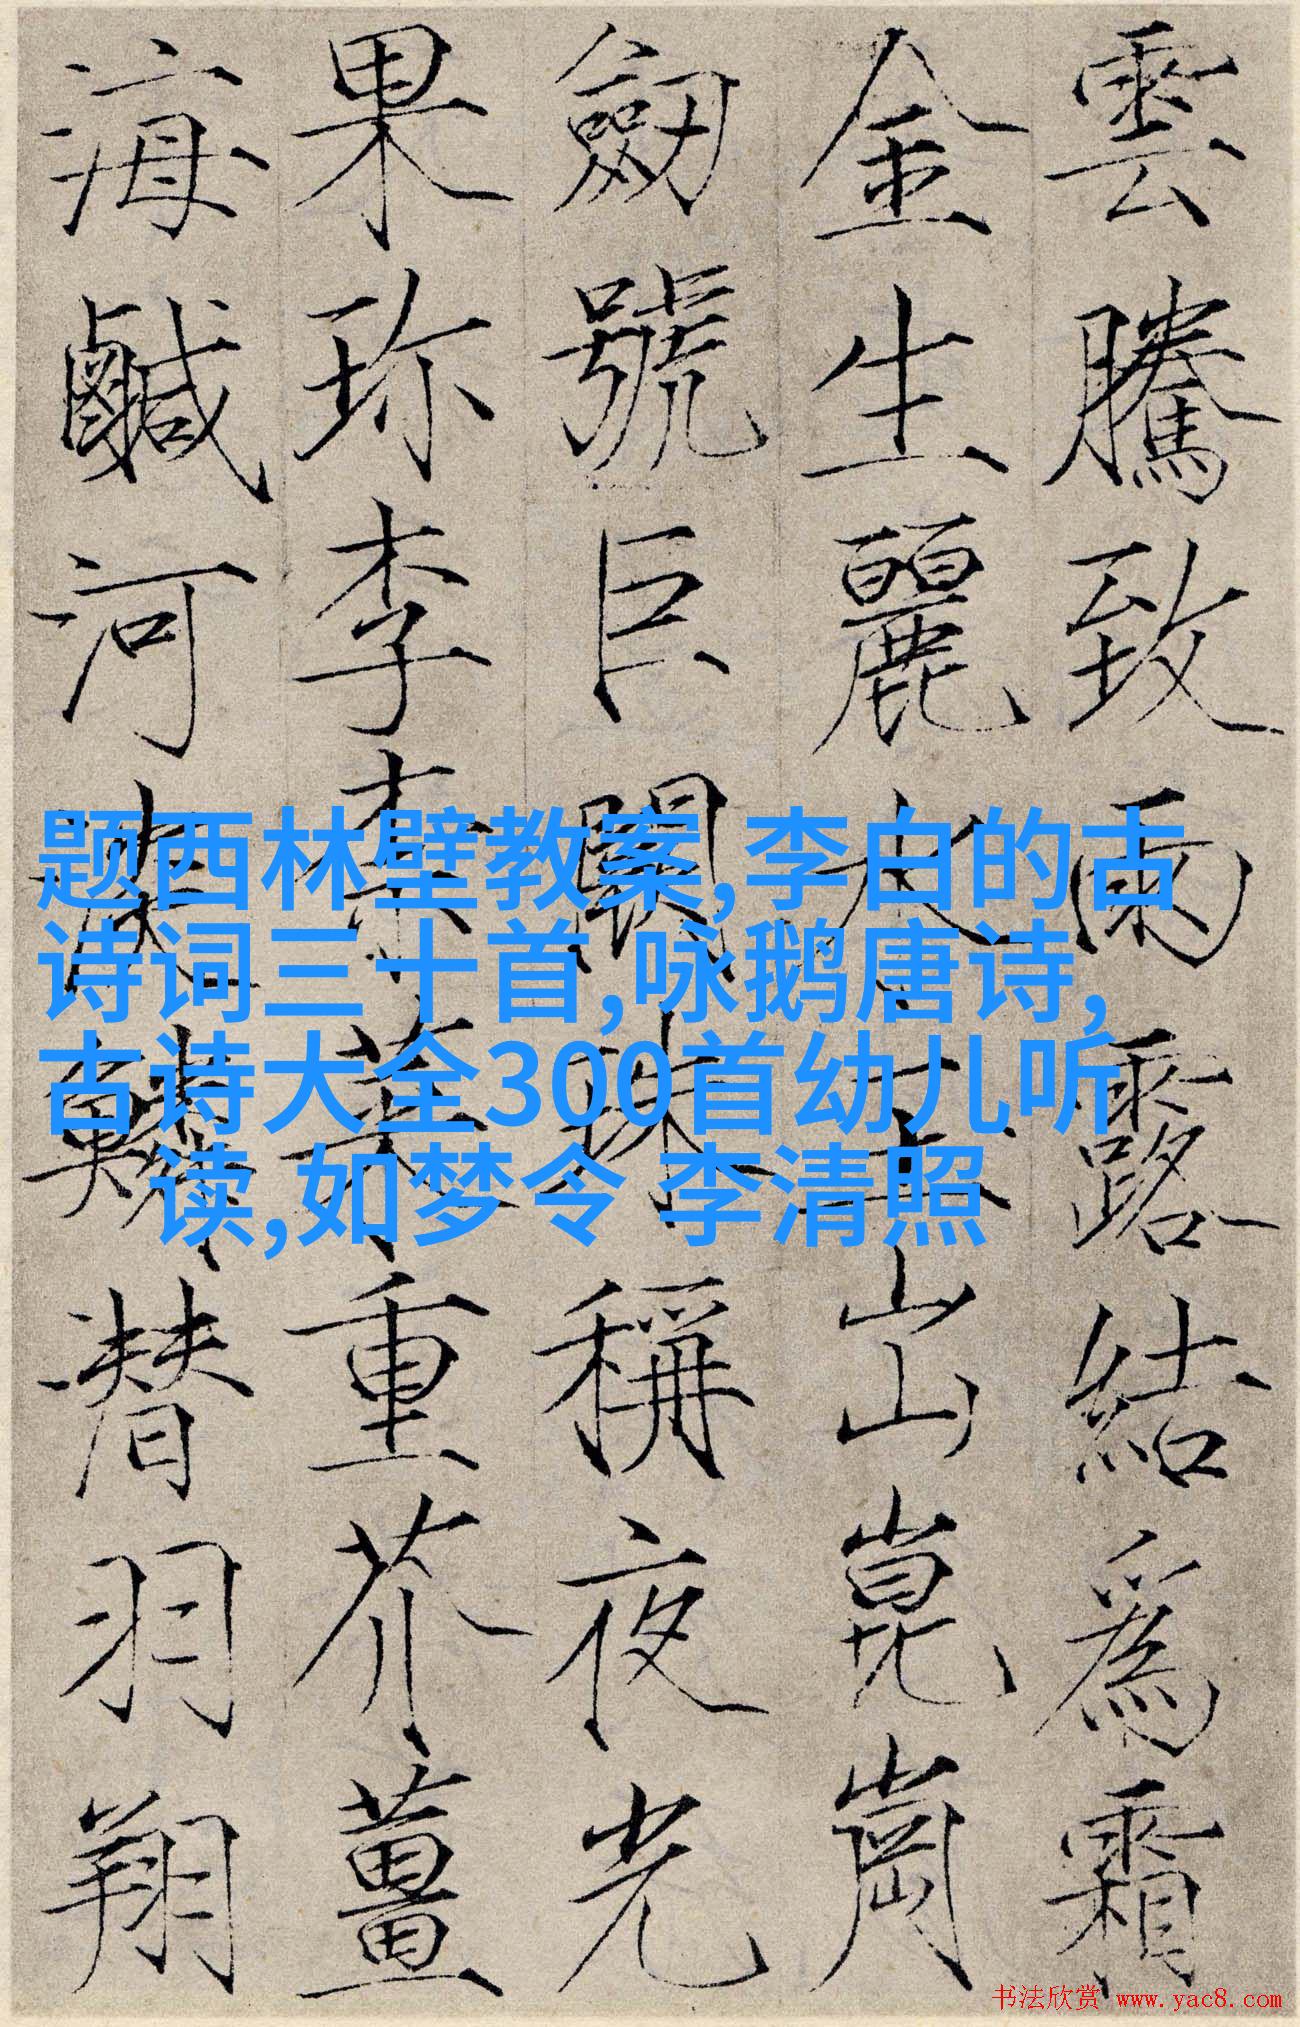 雲騰致雨露結爲霜
金生麗水玉出崑崗
劒號巨闕珠稱夜光
果珎李柰菜重芥薑
海鹹河淡鱗潜羽翔
题西林壁教案,李白的古
诗词三十首,咏鹅唐诗,
古诗大全300首幼儿听
读,如梦令 李清照
书法欣赏 www.yac8.com